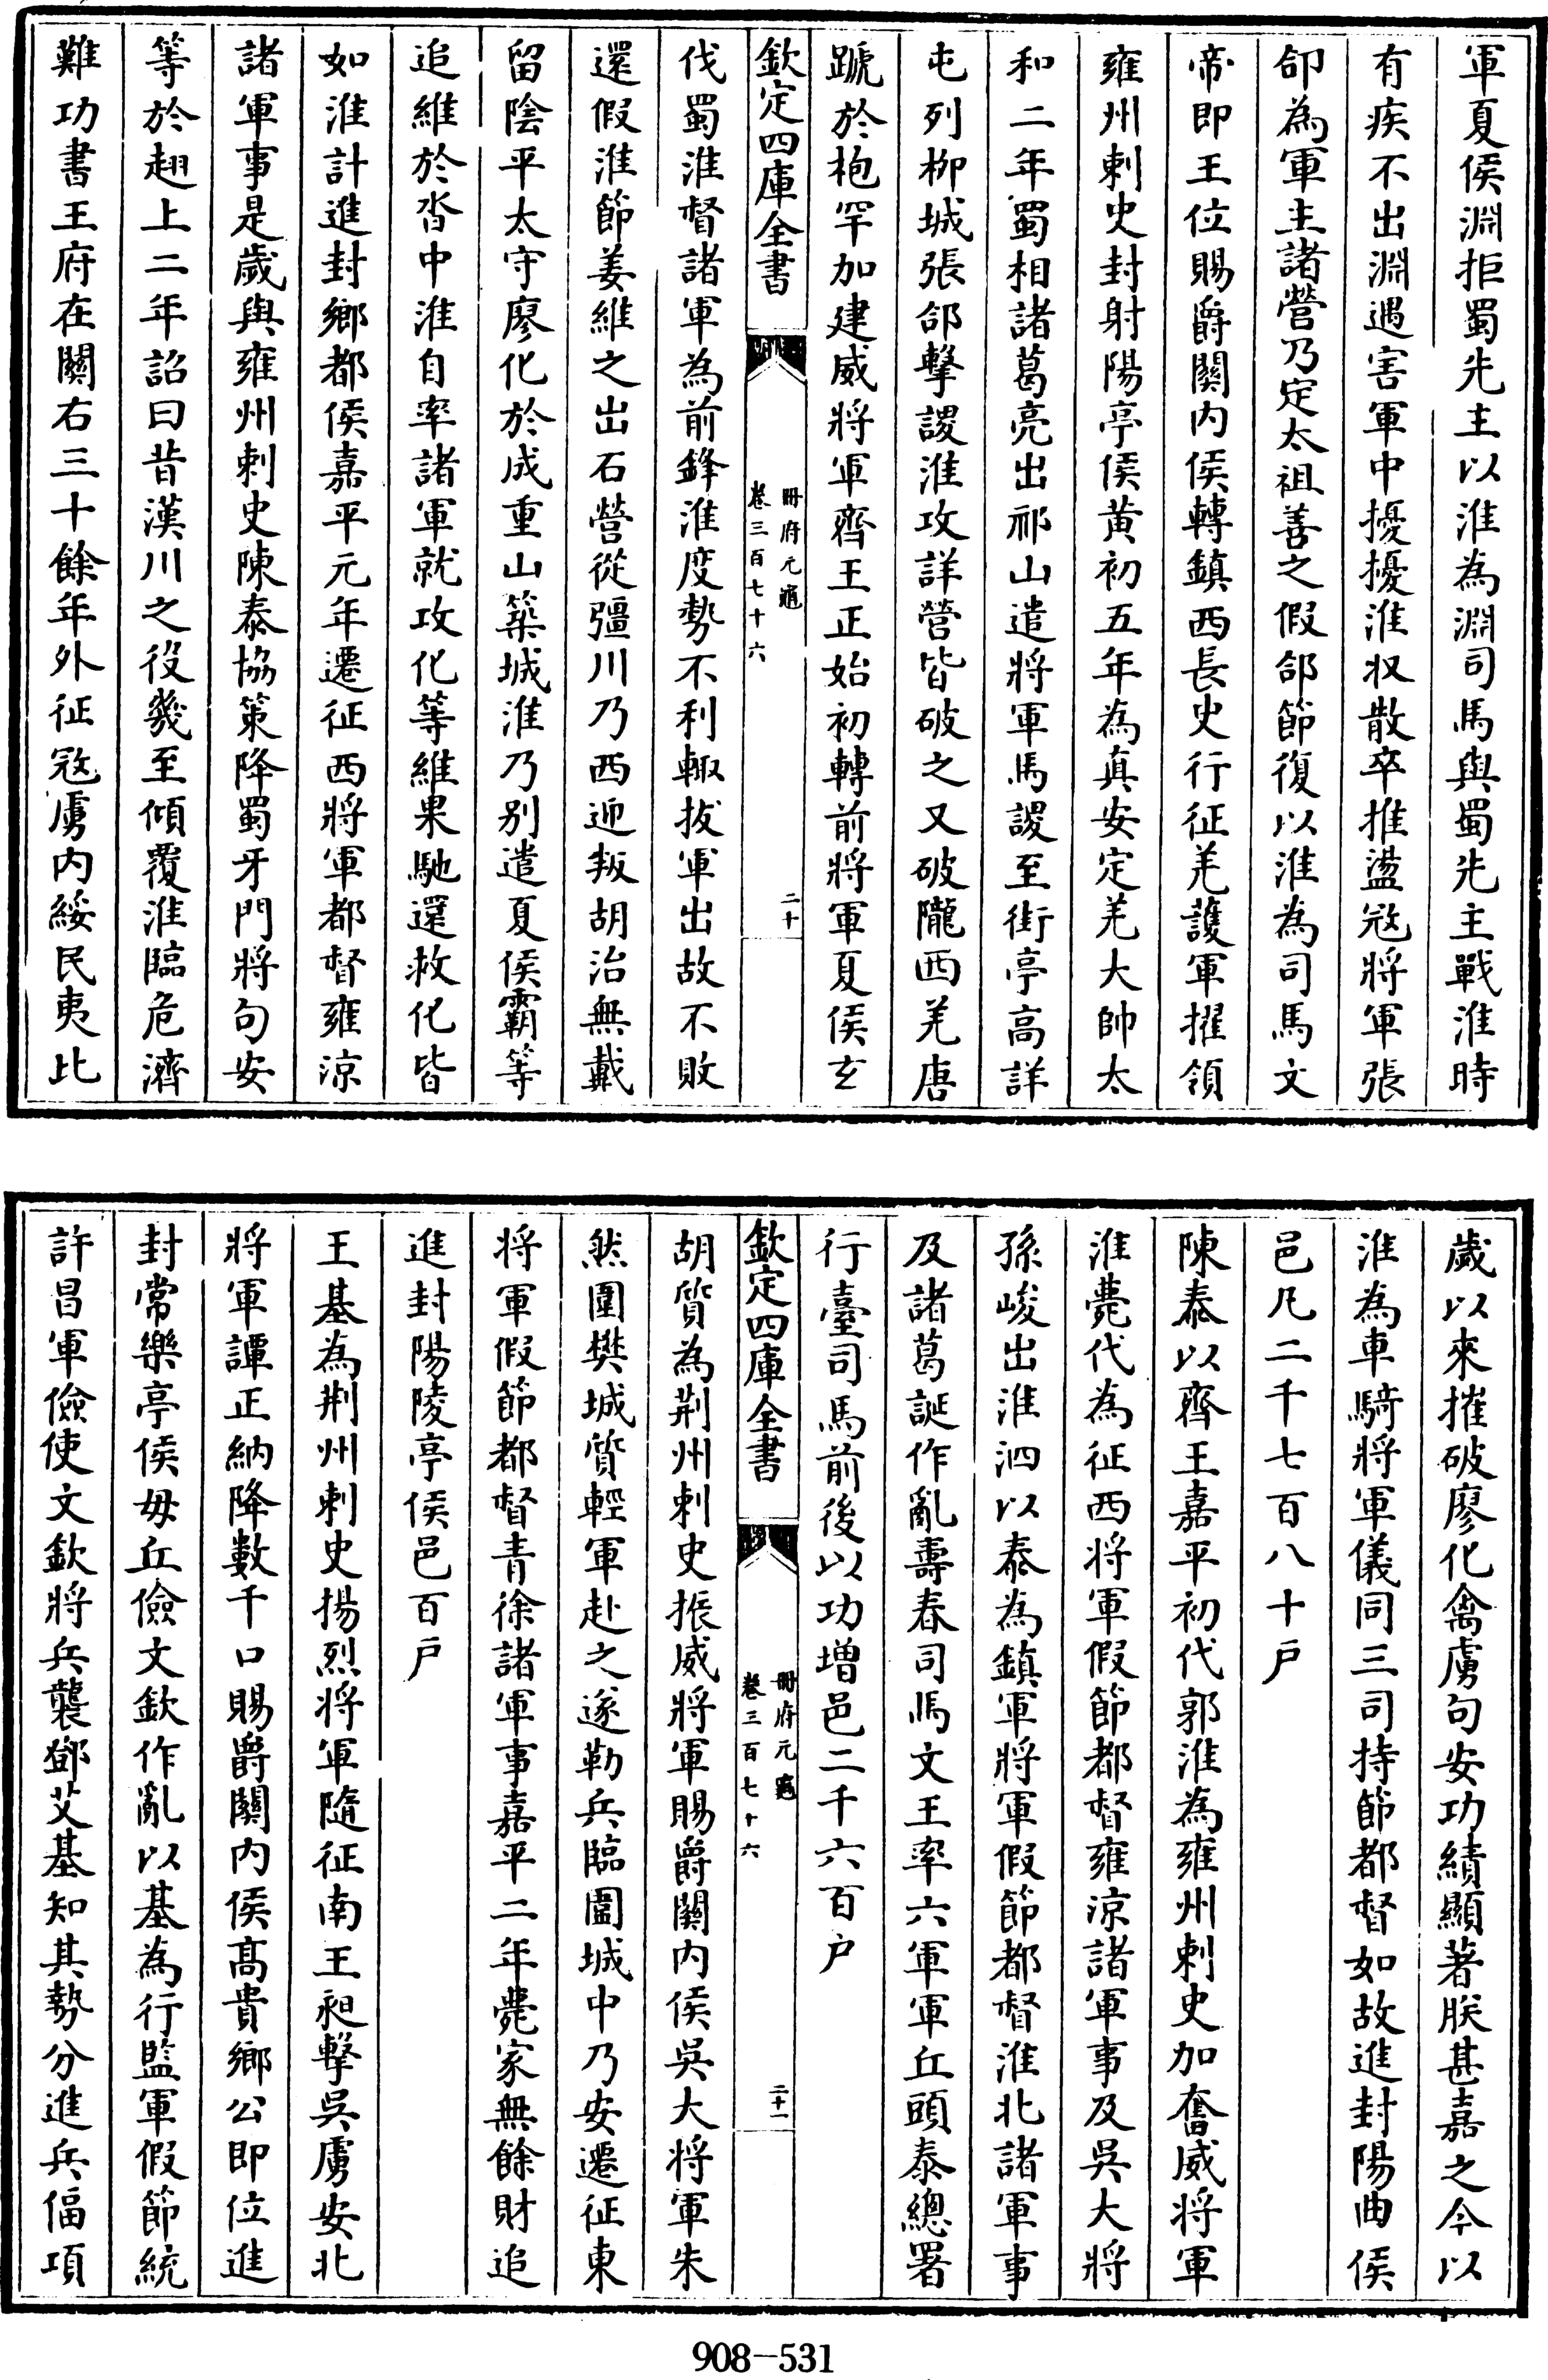 軍夏侯淵拒蜀先主以淮為淵司馬與蜀先主戰淮時
有疾不出淵遇害軍中擾擾淮收散卒推盪宼將軍張
郃為軍主諸營乃定太祖善之假郃節復以淮為司馬文
帝即王位賜爵關内侯轉鎮西長史行征羌護軍擢領
雍州刺史封射陽亭侯黄初五年為真安定羌大帥太
和二年蜀相諸葛亮出祁山遣將軍馬謖至街亭高詳
屯列柳城張郃擊謖淮攻詳營皆破之又破隴西羌唐
蹏於枹罕加建威將軍齊王正始初轉前將軍夏侯玄
欽定四庫全書
冊府元龜
卷三百七十六
二十
伐蜀淮督諸軍為前鋒淮度勢不利輙拔軍出故不敗
還假淮節姜維之出石營從彊川乃西迎叛胡治無戴
留陰平太守廖化於成重山築城淮乃别遣夏侯霸等
追維於沓中淮自率諸軍就攻化等維果馳還救化皆
如淮計進封鄉都侯嘉平元年遷征西將軍都督雍涼
諸軍事是歲與雍州刺史陳泰協策降蜀牙門將句安
等於翅上二年詔曰昔漢川之役幾至傾覆淮臨危濟
難功書王府在關右三十餘年外征宼虜内綏民夷比
歲以來摧破廖化禽虜句安功績顯著朕甚嘉之今以
淮為車騎將軍儀同三司持節都督如故進封陽曲侯
邑凡二千七百八十戶
陳泰以齊王嘉平初代郭淮為雍州刺史加奮威將軍
淮薨代為征西將軍假節都督雍涼諸軍事及吳大將
孫峻出淮泗以泰為鎮軍將軍假節都督淮北諸軍事
及諸葛誕作亂壽春司馬文王率六軍軍丘頭泰總署
行臺司馬前後以功增邑二千六百户
欽定四庫全書
冊府元龜
卷三百七十六
二十一
胡質為荆州刺史振威將軍賜爵關内侯吳大將軍朱
然圍樊城質輕軍赴之遂勒兵臨圍城中乃安遷征東
將軍假節都督青徐諸軍事嘉平二年薨家無餘財追
進封陽陵亭侯邑百戶
王基為荆州刺史揚烈將軍隨征南王昶擊吳虜安北
將軍譚正納降數千口賜爵關内侯髙貴鄉公即位進
封常樂亭侯毋丘儉文欽作亂以基為行監軍假節統
許昌軍儉使文欽將兵襲鄧艾基知其勢分進兵偪項
908-531